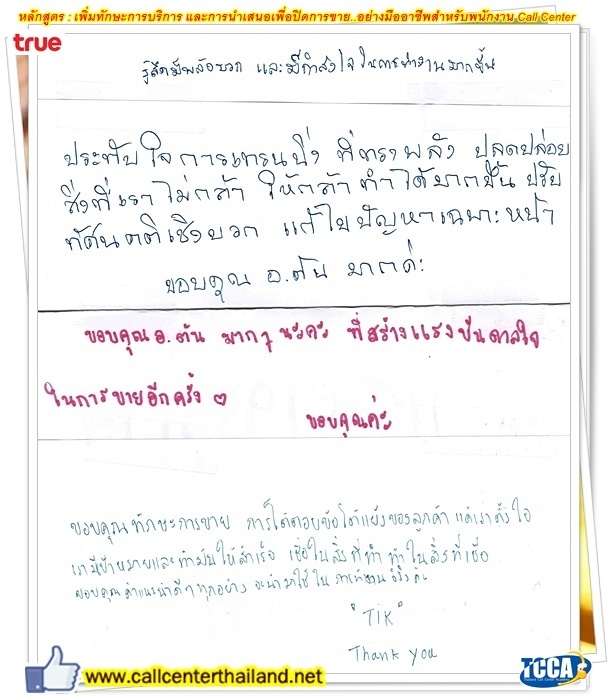 หลักสูตร : เพิ่มทักษะการบริการ และการนำเสนอเพื่อปิดการขาย..อย่างมืออาชีพสำหรับพนักงาน Call Center
true
รู้สึกมีพลังบวก และมีกำลังใจในการทำงานมากขึ้น
ประทับใจการเทรนนิ่ง ที่ทรงพลัง ปลดปล่อย
สิ่งที่เราไม่กล้า ให้กล้าทำได้มากขึ้น ปรับ
ทัศนคติเชิงบวก แก้ไขปัญหาเฉพาะหน้า
ขอบคุณ อ.ต้น มากค่ะ
ขอบคุณ อ.ต้น มากๆ นะคะ ที่สร้างแรงบันดาลใจ
ในการขายอีกครั้ง ♡
ขอบคุณค่ะ
ขอบคุณทักษะการขาย การโต้ตอบข้อโต้แย้งของลูกค้า แค่เราตั้งใจ
เรามีเป้าหมายและทำมันให้สำเร็จ เชื่อในสิ่งที่ทำ ทำในสิ่งที่เชื่อ
ขอบคุณคำแนะนำดีๆทุกอย่าง จะนำมาใช้ในการทำงานจริงๆ ค่ะ
"TIK"
Thank you
www.callcenterthailand.net
TCCA
Thailand Call Center Academy